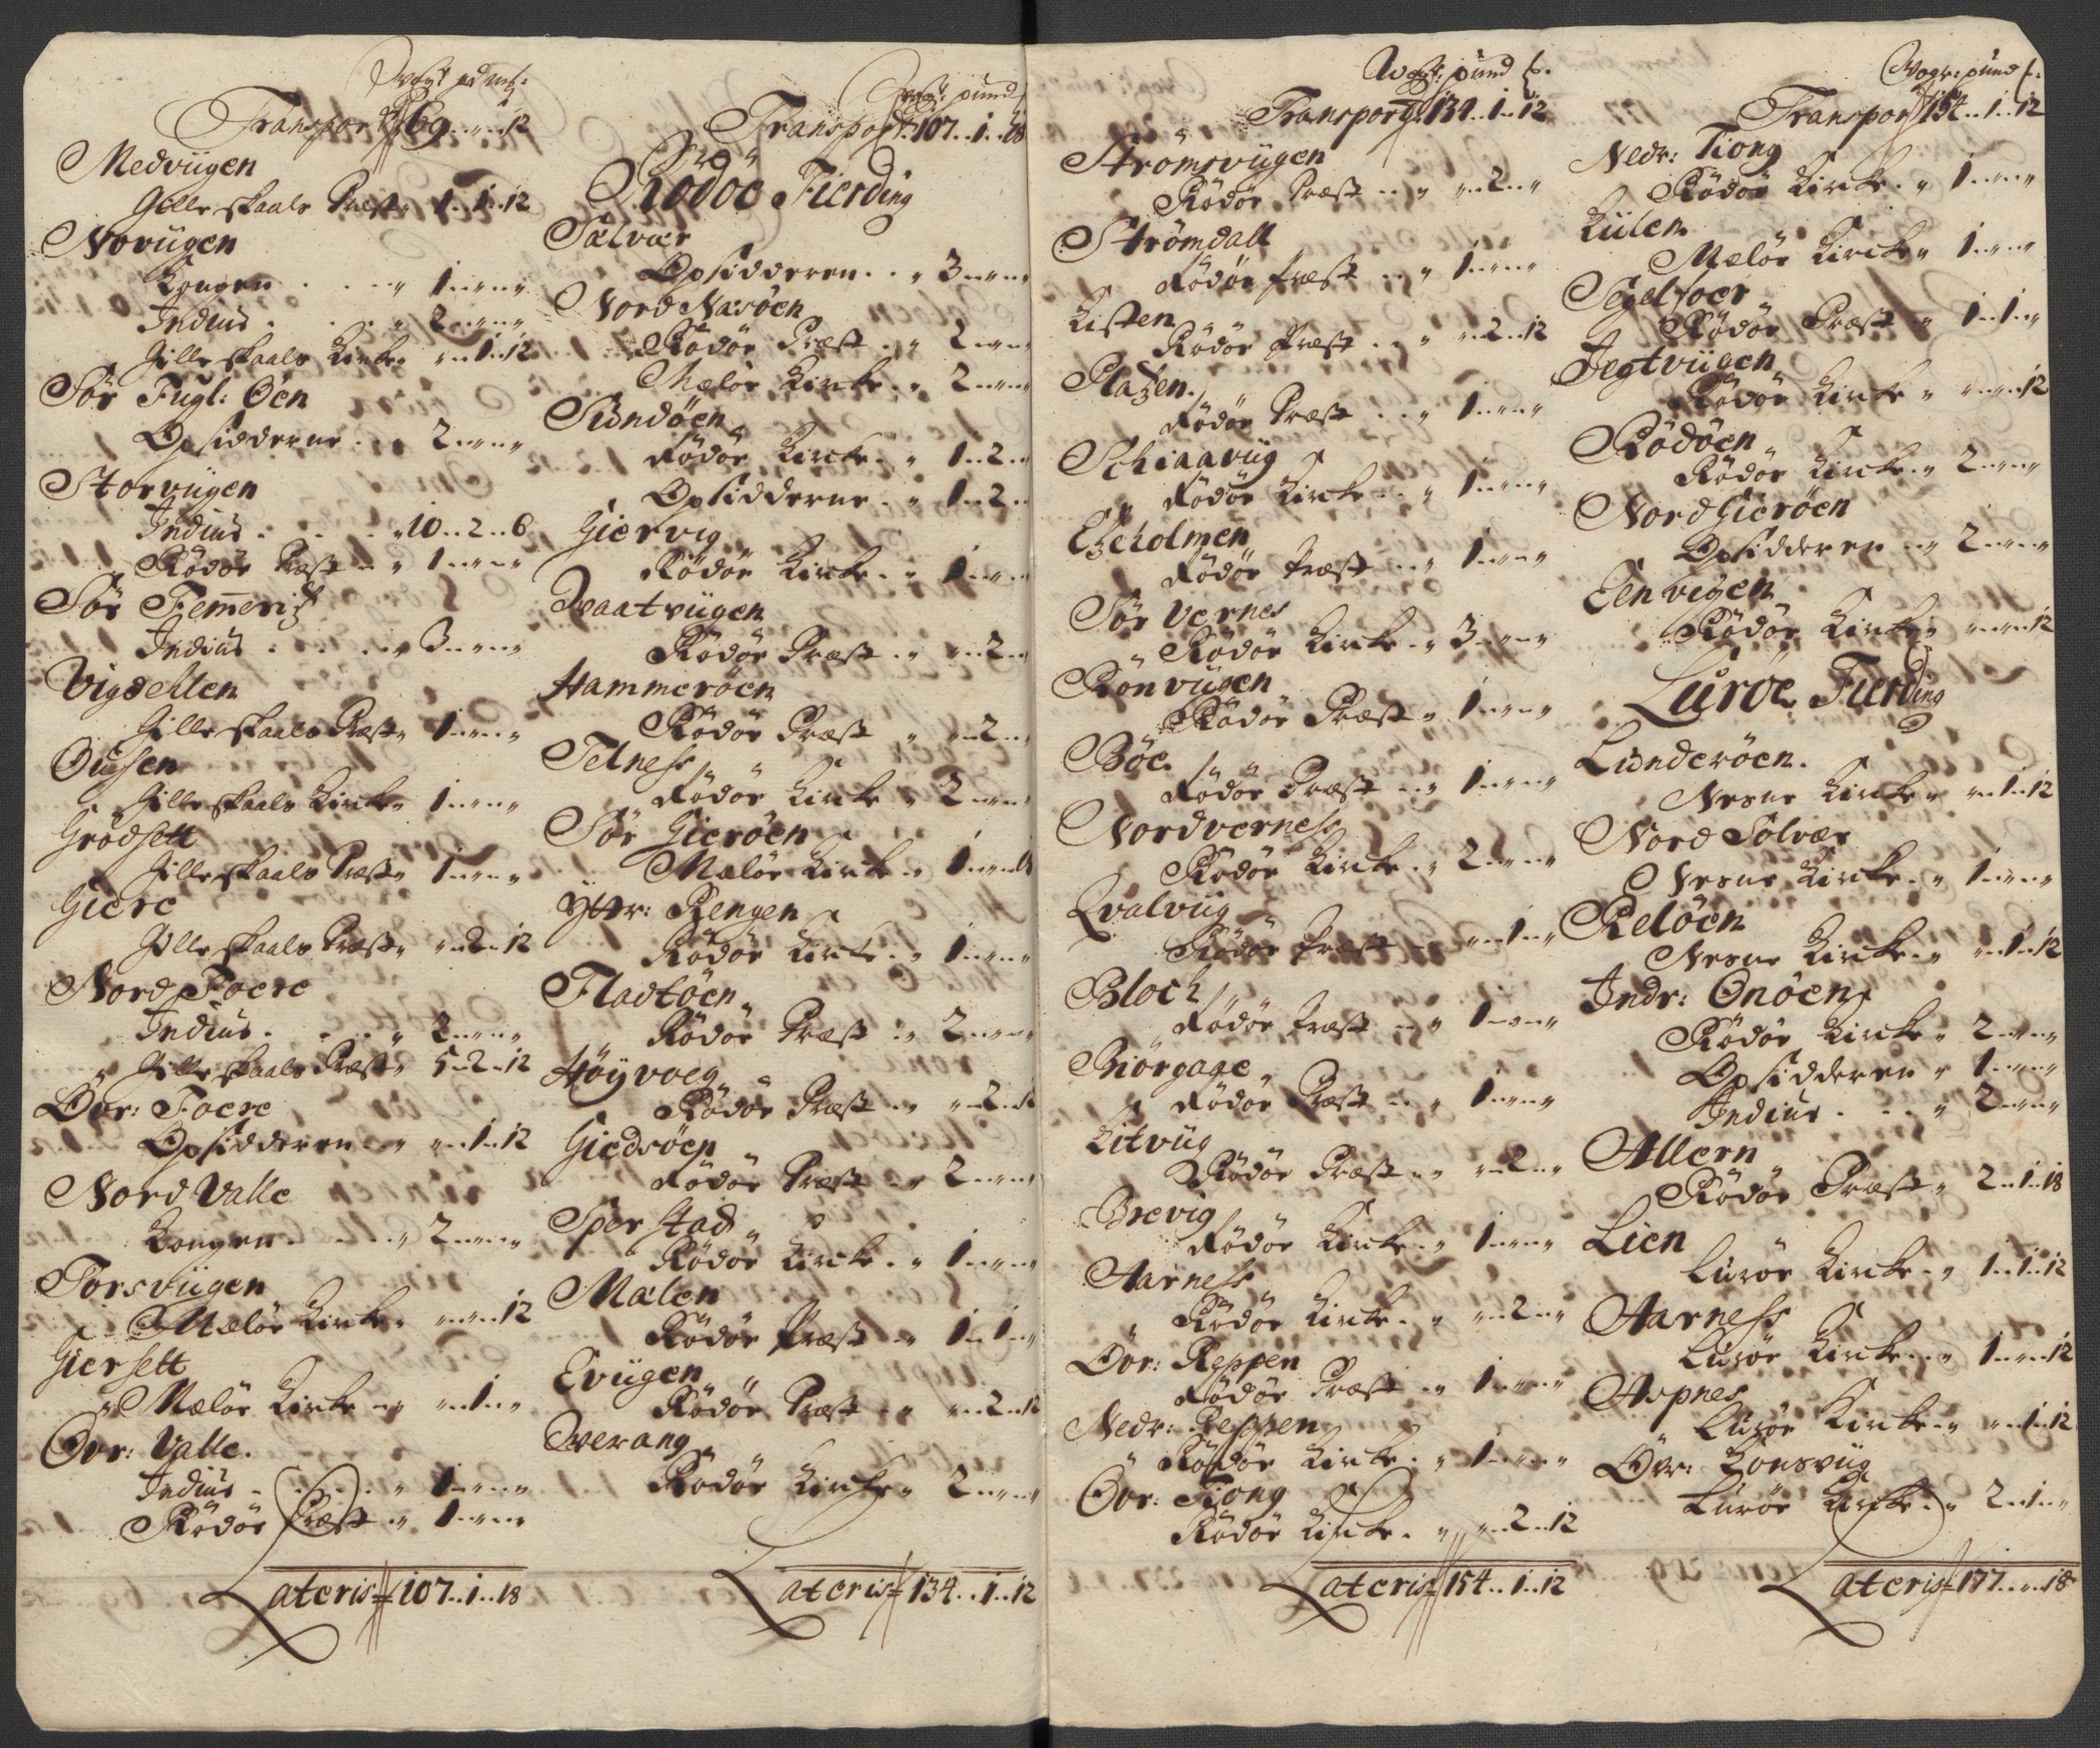 Transport 69 „ 12
Medviigen
Gilleskaals Præst „ 1..1..12
Noviigen
Kongen . . . „ 1.„.„
Indius . . . „ 2.„.„
Gilleskaals Kircke „ „..1..12
Sör Fugl: Öen
Opsidderne . . „ 2.„.„
Storviigen
Indius . . . „ 10..2..6
Rödöe Præst .. „ 1.„.„
Sör Femeris
Indius . . . „ 3.„.„
Vigdelten
Gilleskaals Præst „ 1.„.„
Ougsen
Gilleskaals Kircke „ 1.„.„
Grödsett
Gilleskaals Præst „ 1.„.„
Giere
Gilleskaals Præst „ „..2..12
Nord Foere
Indius . . . „ 2.„.„
Gilleskaals Præst „ 5..2..12
Övr: Foere
Opsidderen . . „ „..1..12
Nord Valle
Kongen . . . „ 2.„.„
Torsviigen
Melöe Kircke „ „.„.12
Giersett
Melöe Kircke .. „ „..1..„
Övr: Valle.
Indius . . . „ 1.„.„
Rödöe Præst .. „ 1.„.„
Lateris 107..1..18
Wog: pund
Transport 107..1..18
Rödöe Fierding
Sælvær
Opsidderen . . „ 3.„.„
Nord Næsöen
Rödöe Præst . . „ 2.„.„
Melöe Kircke . . „ 2.„.„
Sundöen
Rödöe Kircke . . „ 1..2..
Opsidderne . . „ 1..2..
Giervig
Rödöe Kircke . . „ 1.„.„
Svaatviigen
Rödöe Præst . . „ „..2..
Hammeröen
Rödöe Præst „ „..2..
Telness
Rödöe Kircke „ 2.„.„
Sör Gieröen
Melöe Kircke . „ 1.„.
Ytr: Rengen
Rödöe Kircke . . „ 1.„.„
Fladtöen
Rödöe Præst . . „ 2.„.„
Höyvoeg
Rödöe Præst . . „ „..2..
Giedsöen
Rödöe Præst . . „ 2.„.„
Sperstad
Rödöe Kircke . . „ 1.„.„
Mælen
Rödöe Præst . . „ 1..1..„
Eviigen
Rödöe Præst . . „ „..2..12
Sverang
Rödöe Kircke „ 2.„.„
Lateris 134..1..12
Wog: pund
Transport 134..1..12
Strömsviigen
Rödöe Præst . . „ „..2..„
Strömdall
Rödöe Præst . . „ 1.„.„
Kisten
Rödöe Præst . . „ „..2..12
Plazen
Rödöe Præst . . „ 1.„.„
Schiaaviig
Rödöe Kircke . . „ 1.„.„
Ezeholmen
Rödöe Præst . . „ 1.„.„
Sör Vernes
Rödöe Kircke . . „ 3.„.„
Rönviigen
Rödöe Præst „ 1.„.„
Böe
Rödöe Præst . . „ 1.„.„
Nordverness
Rödöe Kircke . . „ 2.„.„
Qvalviig
Rödöe Præst . . „ „..1..„
Bloch
Rödöe Præst . . „ 1.„.„
Biörgage
Rödöe Præst . . „ 1.„.„
Kitviig
Rödöe Præst . . „ „..2..„
Brevig
Rödöe Kircke . . „ 1.„.„
Aarness
Rödöe Kircke . . „ „..2..„
Övr: Reppen
Rödöe Præst . . „ 1.„.„
Nedr: Reppen
Rödöe Kircke . „ 1.„.„
Övr: Tiong
Rödöe Kircke . „ „..2..12
Lateris 154..1..12
Wogr: pund
Transport 154..1..12
Nedr: Tiong
Rödöe Kircke . „ 1.„.„
Kiilen
Melöe Kircke „ 1.„.„
Segelfoer
Rödöe Præst . „ 1..1..„
Jegtviigen
Rödöe Kircke „ „.„.12
Rödöen
Rödöe Kircke . „ 2.„.„
Nord Gieröen
Opsidderen . . „ 2.„.„
Eenvigen
Rödöe Kircke „ „.„.12
Luröe Fierding
Lunderöen.
Nesne Kircke „ „..1..12
Nord Solvær
Nesne Kircke . „ 1.„.„
Relöen
Nesne Kircke . „ „..1..12
Indr: Onöen
Rödöe Kircke „ 2.„.„
Opsidderen „ 1.„.„
Indius . . . „ 2.„.„
Allern
Rödöe Præst „ 2..1..18
Lien
Luröe Kircke . „ 1..1..12
Aarness
Luröe Kircke . . „ 1.„.12
Aspnes
Luröe Kircke . „ „..1..12
Övr: Konsviig
Luröe Kircke . „ 2..1..„
Lateris 177..„..18